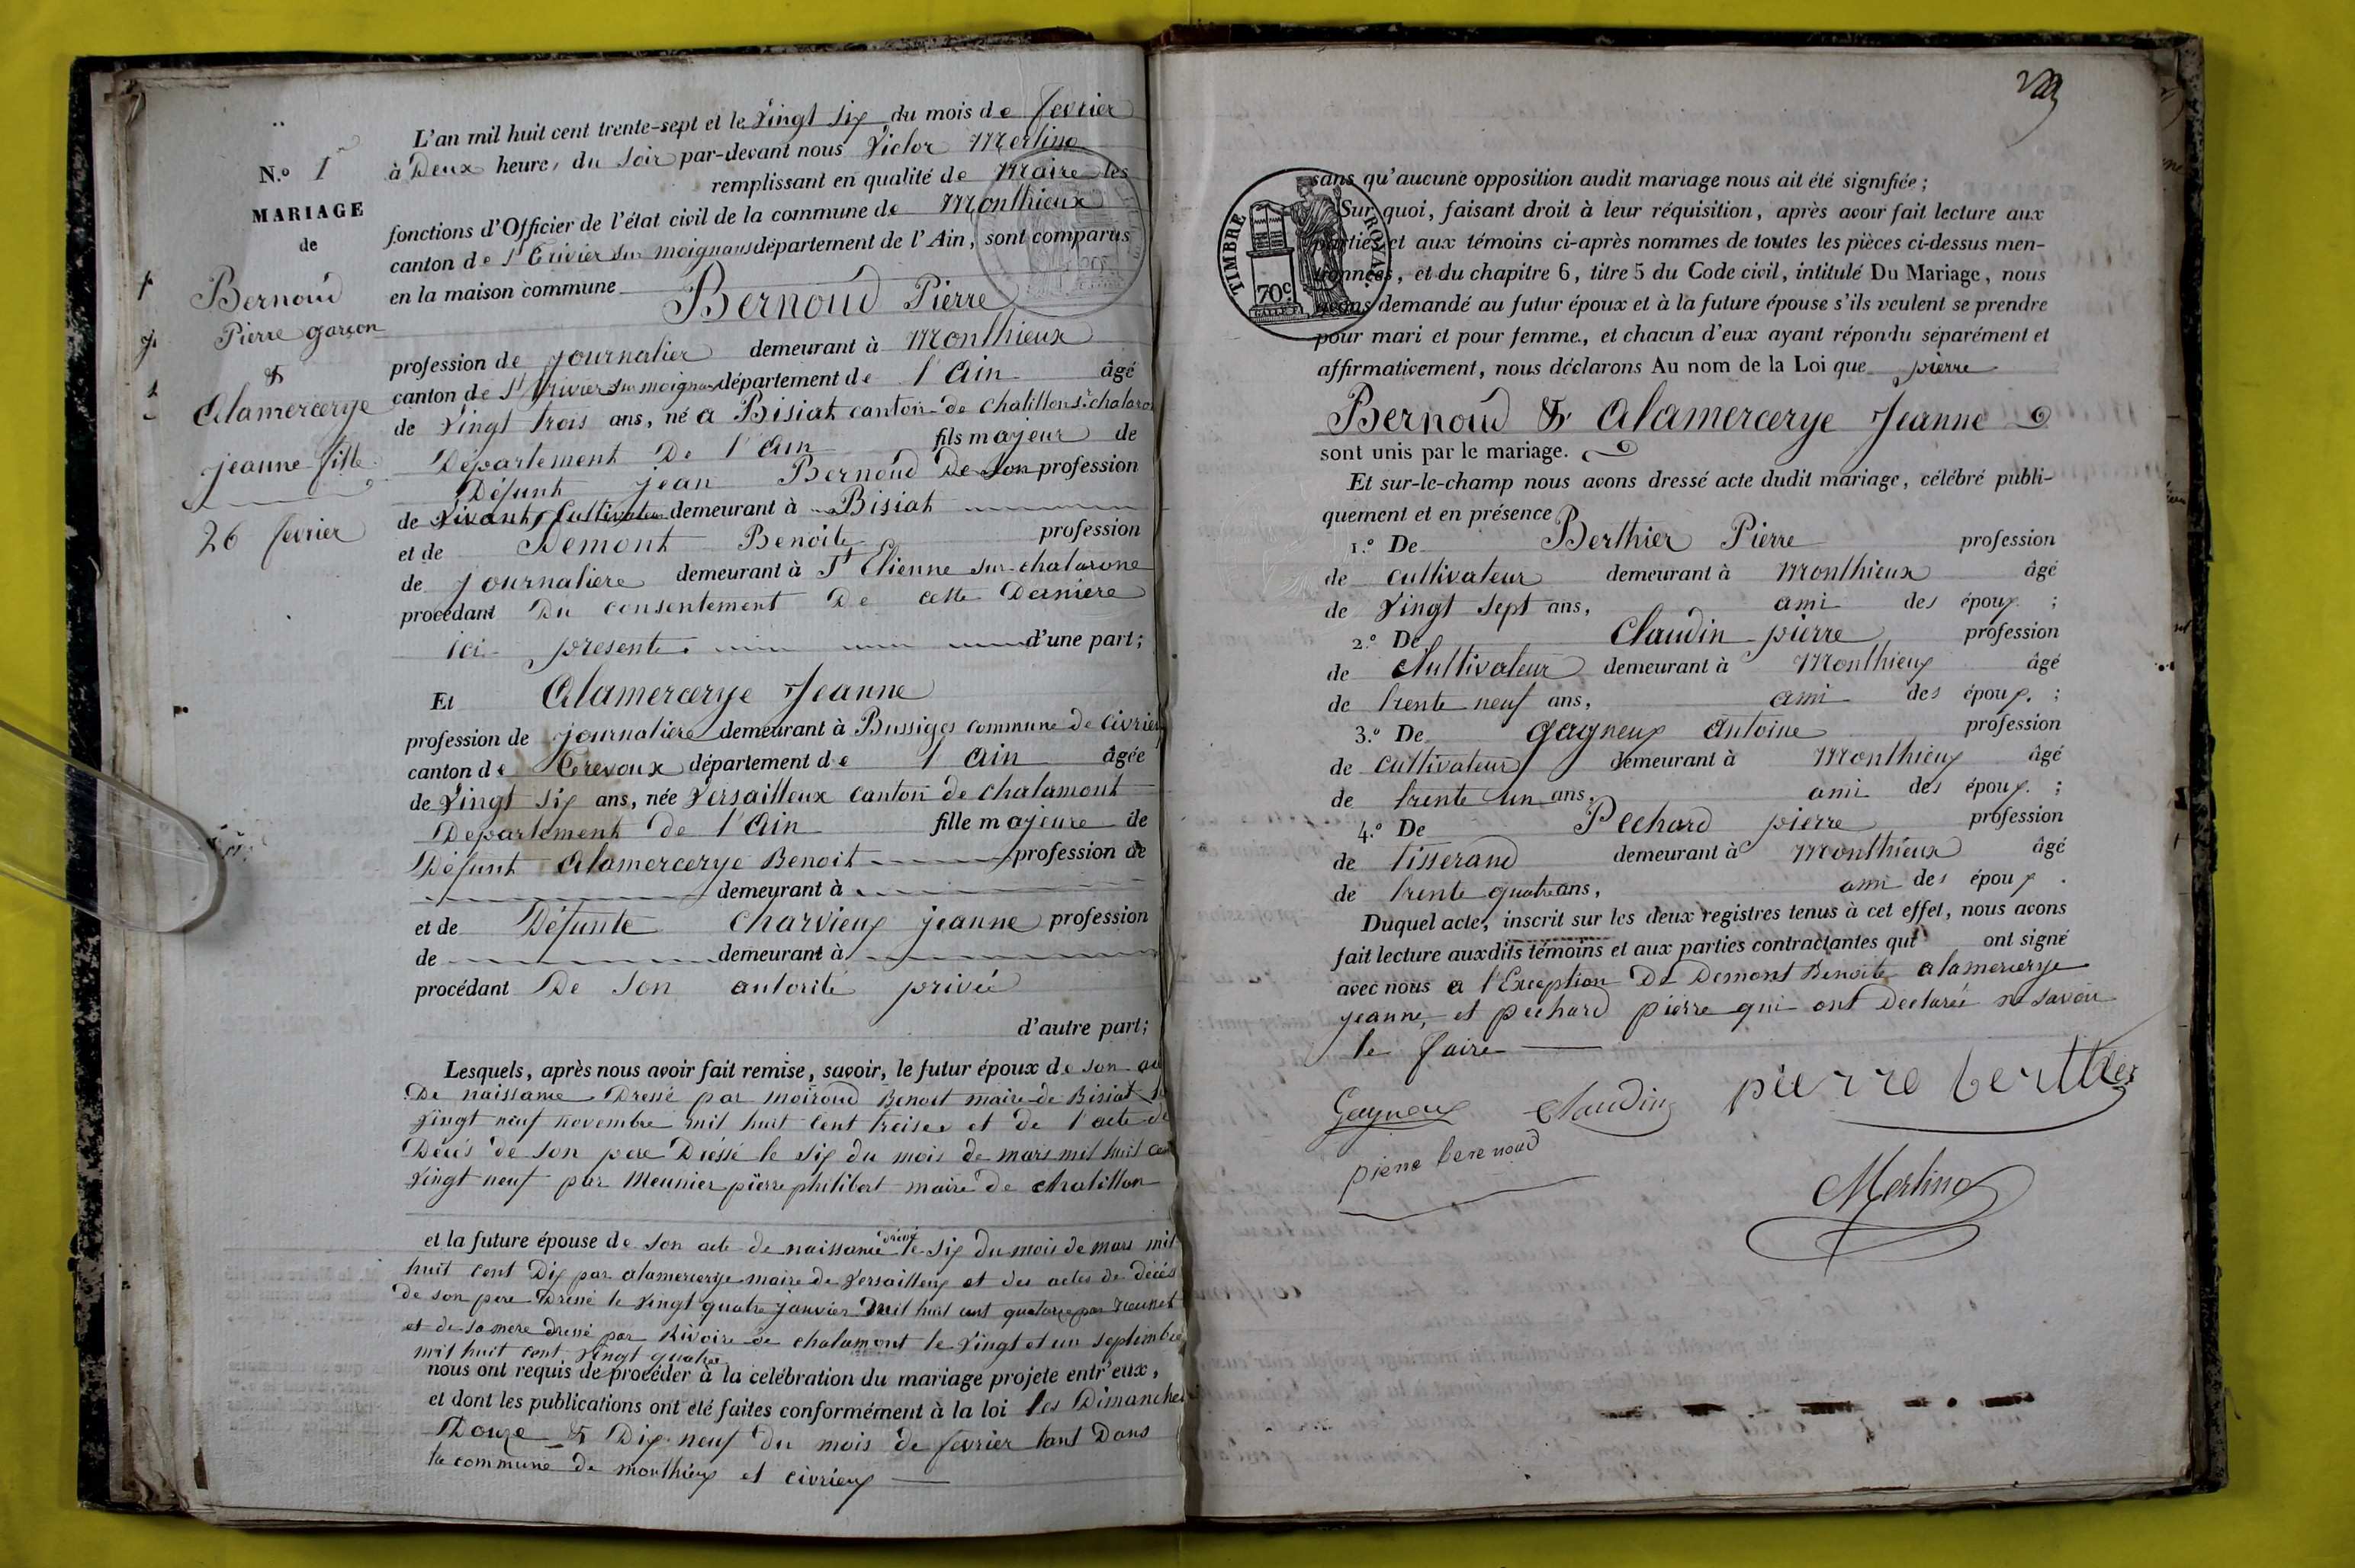 N.º 1
MARIAGE
de
Bernoud
Pierre garçon
&
Alamercerye
jeanne fille
26 fevrier
L'an mil huit cent trente-sept et le Vingt six du mois de fevrier
à Deux heures du soir par-devant nous Victor Merlino
remplissant en qualité de Maire les
fonctions d'Officier de l'état civil de la commune de Monthieux
canton de St Trivier sur moignans département de l'Ain, sont comparus
en la maison commune
Bernoud Pierre
profession de journalier demeurant à Monthieux
canton de St Trivier sur moignans département de l'Ain âgé
de Vingt trois ans, né a Bisiat canton de Chatillon sr chalaro
Département De l'Ain fils majeur de
Défunt jean Bernoud De son profession
de Vivant Cultivateur demeurant à Bisiat
et de Demont Benoite profession
de journaliere demeurant à St Etienne sur chalarone
procédant Du consentement De cette Derniere
ici presente. d'une part;
Et Alamercerye Jeanne
profession de journaliere demeurant à Bussiges commune de Civrieux
canton de Trevoux département de l'Ain âgée
de Vingt six ans, née Versailleux canton de chalamont
Departement de l'Ain fille majeure de
Défunt Alamercerye Benoit profession de
demeurant à
et de Défunte Charvieux jeanne profession
de demeurant à
procédant De son autorité privée
d'autre part;
Lesquels, après nous avoir fait remise, savoir, le futur époux de son ac
De naissance Dressé par moiroud Benoit maire de Bisiat le
Vingt neuf novembre mil huit Cent treise et de l'acte de
Décés de son pere Dréssé le six du mois de mars mil huit cen
Vingt neuf par Meunier pierre philibert maire de chatillon
et la future épouse de son acte de naissance dréssé le six du mois de mars mil
huit Cent Dix par alamercerye maire de Versailleux et des actes de décés
de son pere Dréssé le Vingt quatre janvier mil huit cent quatorze par
et de sa mere dréssé par Rivoire de chalamont le Vingt et un septembre
mil huit Cent Vingt quatre
nous ont requis de procéder à la celébration du mariage projeté entr'eux,
et dont les publications ont été faites conformément à la loi les Dimanches
Douze & Dix neuf Du mois de fevrier tant Dans
la commune de monthieux et civrieux
TIMBRE ROYAL
70c.
sans qu'aucune opposition audit mariage nous ait été signifiée;
Sur quoi, faisant droit à leur réquisition, après avoir fait lecture aux
parties et aux témoins ci-après nommes de toutes les pièces ci-dessus men-
tionnées, et du chapitre 6, titre 5 du Code civil, intitulé Du Mariage, nous
avons demandé au futur époux et à la future épouse s'ils veulent se prendre
pour mari et pour femme, et chacun d'eux ayant répondu séparément et
affirmativement, nous déclarons Au nom de la Loi que pierre
Bernoud & Alamercerye Jeanne
sont unis par le mariage.
Et sur-le-champ nous avons dressé acte dudit mariage, célébré publi-
quement et en présence
1.º De Berthier Pierre profession
de cultivateur demeurant à Monthieux âgé
de Vingt sept ans, ami des époux ;
2.º De Claudin pierre profession
de Cultivateur demeurant à Monthieux âgé
de trente neuf ans, ami des époux. ;
3.º De gagneux Antoine profession
de Cultivateur demeurant à Monthieux âgé
de trente un ans, ami des époux. ;
4.º De Pechard pierre profession
de Tisserand demeurant à Monthieux âgé
de trente quatre ans, ami des époux .
Duquel acte, inscrit sur les deux registres tenus à cet effet, nous avons
fait lecture auxdits témoins et aux parties contractantes qui ont signé
avec nous a l'Exception De Demont Benoite alamercerye
jeanne, et pechard pierre qui ont Declarée ne savoir
le faire
Gagneux Claudin pierre berthier
piere berenoud
Merlino